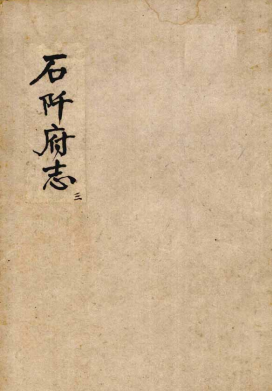 石阡府志
三